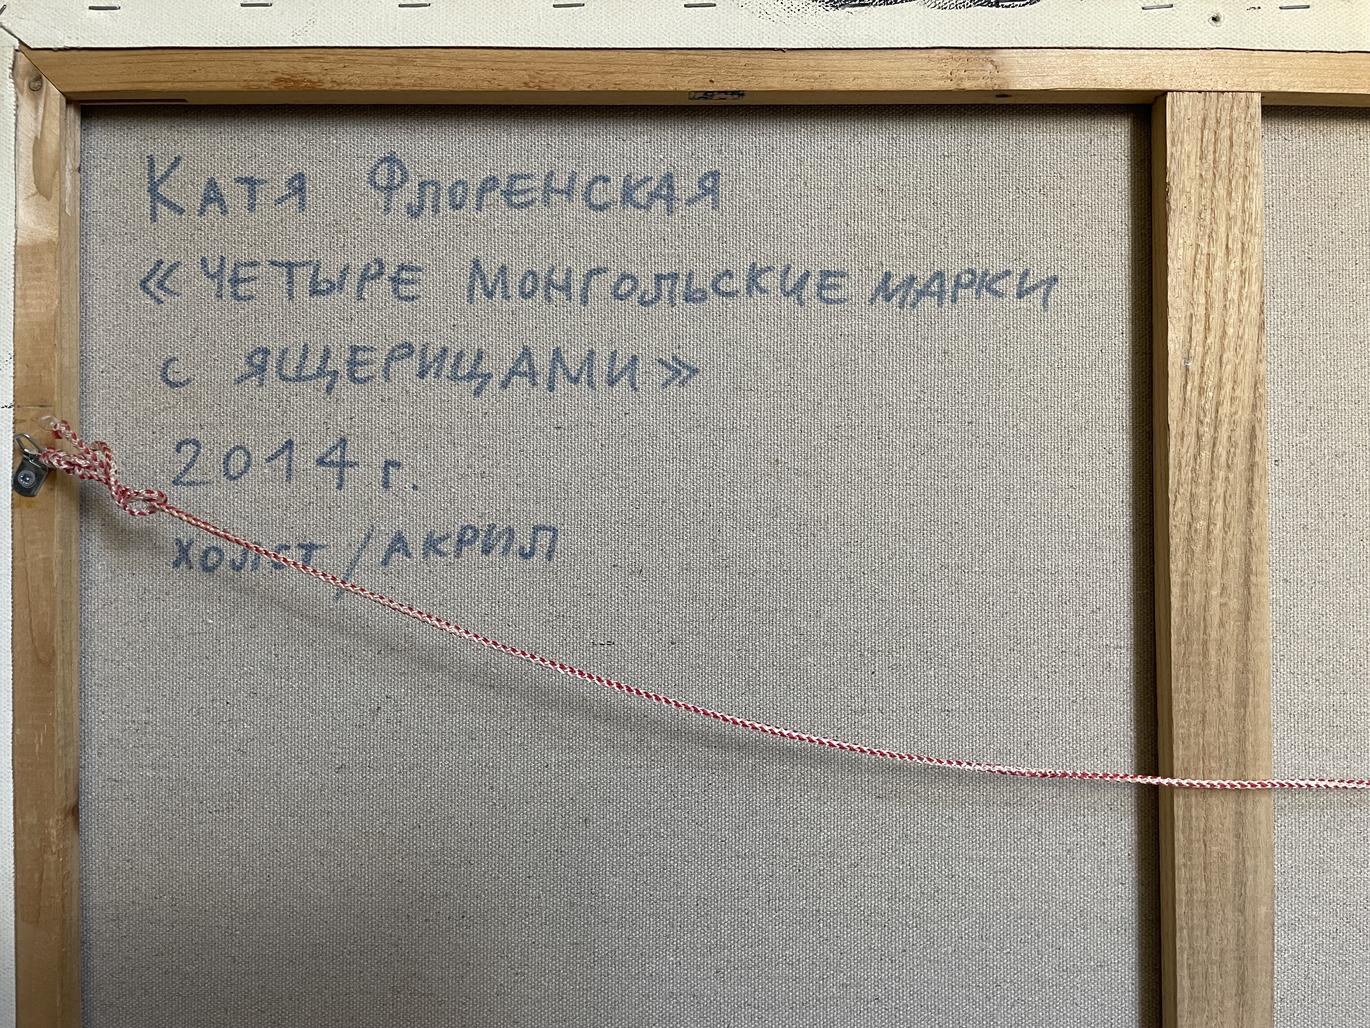 Катя Флоренская
«Четыре монгольские марки
с ящерицами»
2014 г.
холст / акрил